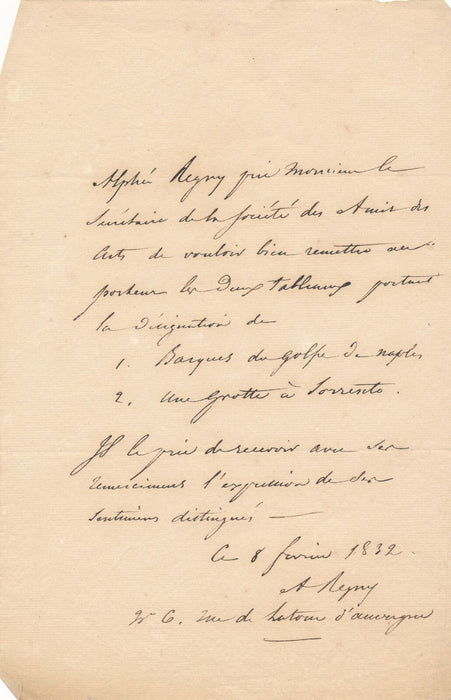 Alphée Regny prie Monsieur le
Secrétaire de la Société des Amis des
Arts de vouloir bien remettre au
porteur les deux tableaux portant
la désignation de
1. Barques du golfe de naples
2. une Grotte à Sorrento.
Il le prie de recevoir avec ses
remerciemens l'expression de ses
sentimens distingués —
Ce 8 fevrier 1832.
A Regny
Nº 6. rue de Latour d'auvergne